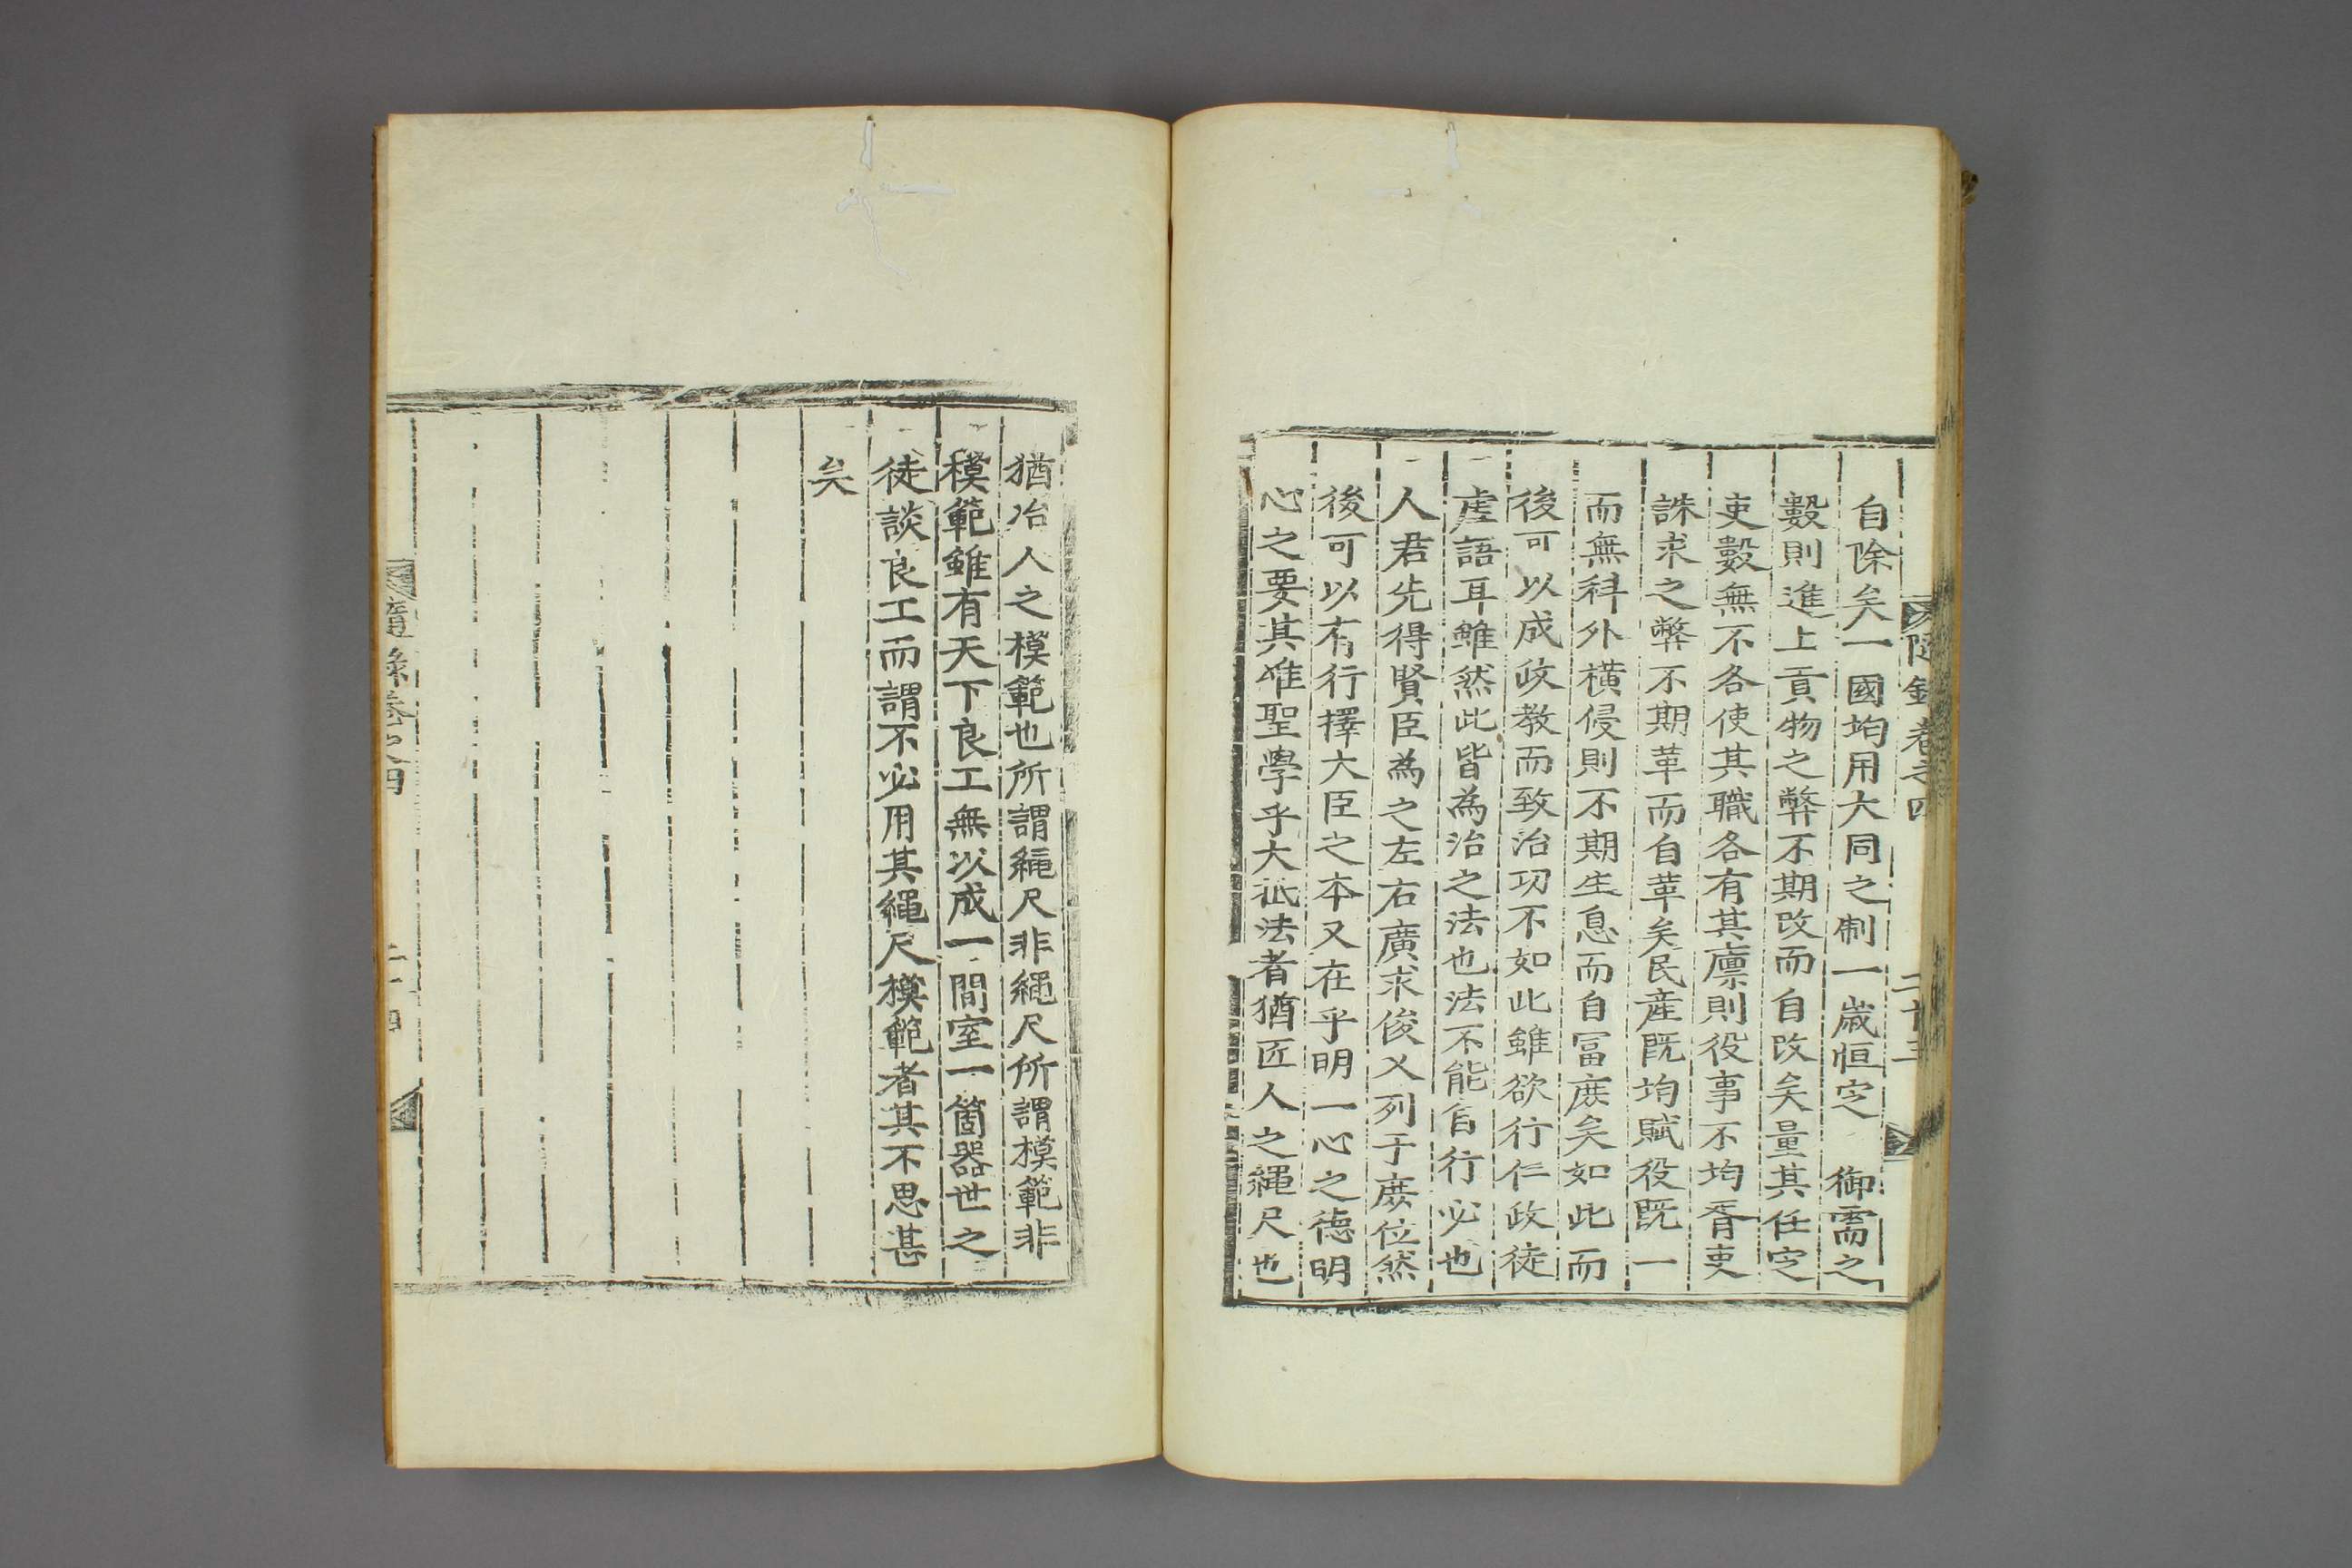 隨錄卷之四 二十三
自除矣一國均用大同之制一歲恒定 御需之
數則進上貢物之弊不期改而自改矣量其任定
吏數無不各使其職各有其廩則役事不均胥吏
誅求之弊不期革而自革矣民產旣均賦役旣一
而無科外橫侵則不期生息而自冨庶矣如此而
後可以成政教而致治功不如此雖欲行仁政徒
虛語耳雖然此皆為治之法也法不能自行必也
人君先得賢臣為之左右廣求俊乂列于庶位然
後可以有行擇大臣之本又在乎明一心之德明
心之要其唯聖學乎大抵法者猶匠人之繩尺也
猶冶人之模範也所謂繩尺非繩尺所謂模範非
模範雖有天下良工無以成一間室一箇器世之
徒談良工而謂不必用其繩尺模範者其不思甚
矣
隨錄卷之四 二十四